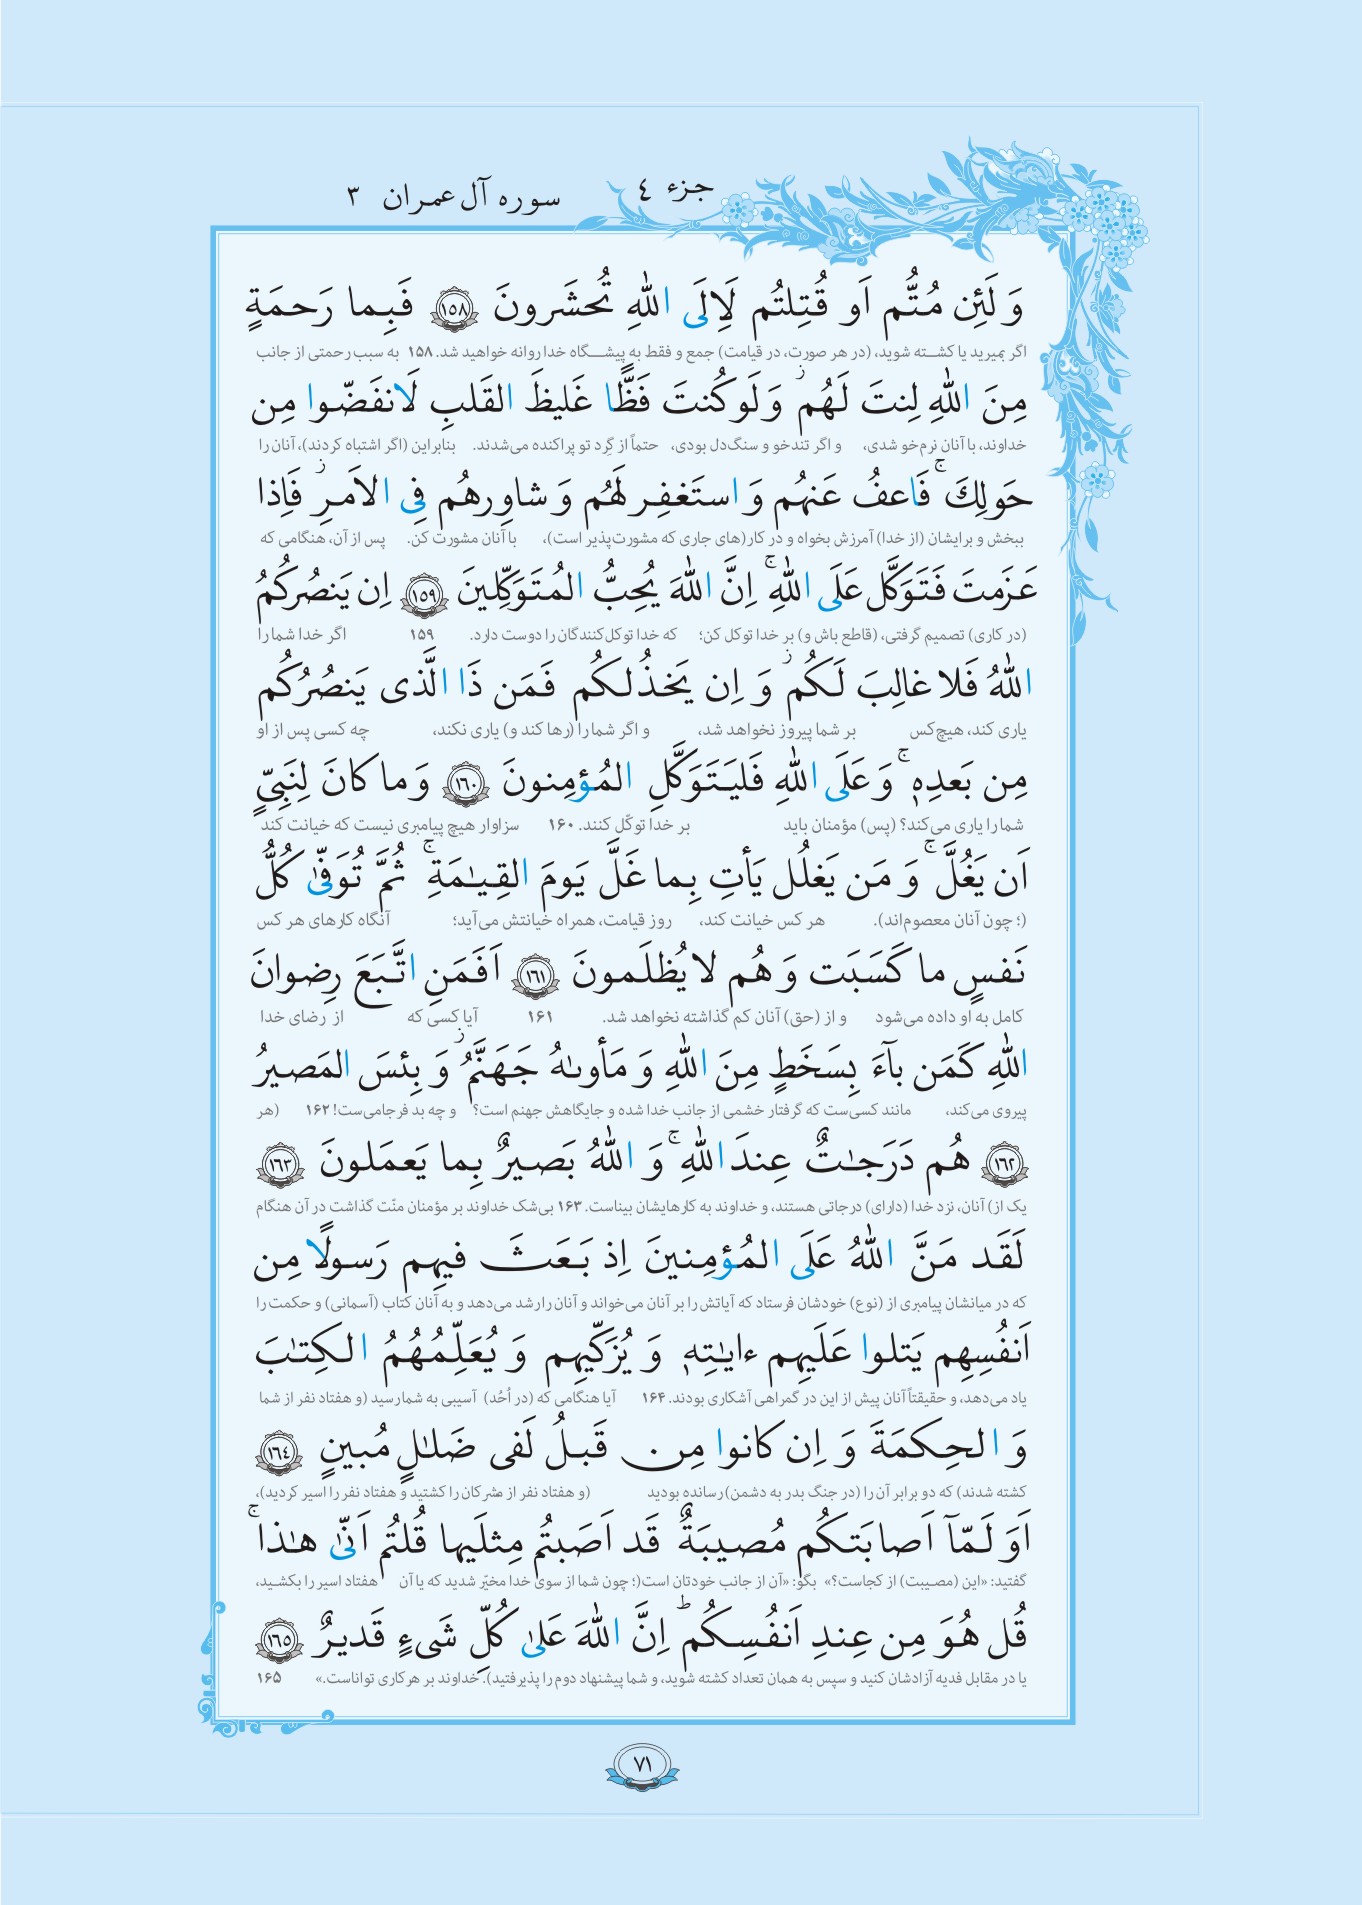 جزء ٤
سوره آل عمران ٣
وَ لَئِن مُتُّم اَو قُتِلتُم لَاِلَى اللّٰهِ تُحشَرونَ ﴿١٥٨﴾ فَبِما رَحمَةٍ
اگر بمیرید یا کشته شوید، (در هر صورت، در قیامت) جمع و فقط به پیشگاه خدا روانه خواهید شد. ۱۵۸ به سبب رحمتی از جانب
مِنَ اللّٰهِ لِنتَ لَهُم ۖ وَ لَو كُنتَ فَظًّا غَليظَ القَلبِ لَانفَضّوا مِن
خداوند، با آنان نرم‌خو شدی، و اگر تندخو و سنگ‌دل بودی، حتماً از گِرد تو پراکنده می‌شدند. بنابراین (اگر اشتباه کردند)، آنان را
حَولِكَ ۚ فَاعفُ عَنهُم وَ استَغفِر لَهُم وَ شاوِرهُم فِى الاَمرِ ۖ فَاِذا
ببخش و برایشان (از خدا) آمرزش بخواه و در کار(های جاری که مشورت‌پذیر است)، با آنان مشورت کن. پس از آن، هنگامی که
عَزَمتَ فَتَوَكَّل عَلَى اللّٰهِ ۚ اِنَّ اللّٰهَ يُحِبُّ المُتَوَكِّلينَ ﴿١٥٩﴾ اِن يَنصُركُمُ
(در کاری) تصمیم گرفتی، (قاطع باش و) بر خدا توکل کن؛ که خدا توکل‌کنندگان را دوست دارد. ۱۵۹ اگر خدا شما را
اللّٰهُ فَلا غالِبَ لَكُم ۖ وَ اِن يَخذُلكُم فَمَن ذَا الَّذى يَنصُرُكُم
یاری کند، هیچ‌کس بر شما پیروز نخواهد شد، و اگر شما را (رها کند و) یاری نکند، چه کسی پس از او
مِن بَعدِهٖ ۚ وَ عَلَى اللّٰهِ فَليَتَوَكَّلِ المُؤمِنونَ ﴿١٦٠﴾ وَ ما كانَ لِنَبِىٍّ
شما را یاری می‌کند؟ (پس) مؤمنان باید بر خدا توکّل کنند. ۱۶۰ سزاوار هیچ پیامبری نیست که خیانت کند
اَن يَغُلَّ ۚ وَ مَن يَغلُل يَأتِ بِما غَلَّ يَومَ القِيٰمَةِ ۚ ثُمَّ تُوَفّىٰ كُلُّ
(؛ چون آنان معصوم‌اند). هر کس خیانت کند، روز قیامت، همراه خیانتش می‌آید؛ آنگاه کارهای هر کس
نَفسٍ ما كَسَبَت وَ هُم لا يُظلَمونَ ﴿١٦١﴾ اَفَمَنِ اتَّبَعَ رِضوانَ
کامل به او داده می‌شود و از (حق) آنان کم گذاشته نخواهد شد. ۱۶۱ آیا کسی که از رضای خدا
اللّٰهِ كَمَن بآءَ بِسَخَطٍ مِنَ اللّٰهِ وَ مَأوىٰهُ جَهَنَّمُ ۖ وَ بِئسَ المَصيرُ
پیروی می‌کند، مانند کسی‌ست که گرفتار خشمی از جانب خدا شده و جایگاهش جهنم است؟ و چه بد فرجامی‌ست! ۱۶۲ (هر
﴿١٦٢﴾ هُم دَرَجٰتٌ عِندَ اللّٰهِ ۚ وَ اللّٰهُ بَصيرٌ بِما يَعمَلونَ ﴿١٦٣﴾
یک از) آنان، نزد خدا (دارای) درجاتی هستند، و خداوند به کارهایشان بیناست. ۱۶۳ بی‌شک خداوند بر مؤمنان منّت گذاشت در آن هنگام
لَقَد مَنَّ اللّٰهُ عَلَى المُؤمِنينَ اِذ بَعَثَ فيهِم رَسولًا مِن
که در میانشان پیامبری از (نوع) خودشان فرستاد که آیاتش را بر آنان می‌خواند و آنان را رشد می‌دهد و به آنان کتاب (آسمانی) و حکمت را
اَنفُسِهِم يَتلوا عَلَيهِم ءايٰتِهٖ وَ يُزَكّيهِم وَ يُعَلِّمُهُمُ الكِتٰبَ
یاد می‌دهد، و حقیقتاً آنان پیش از این در گمراهی آشکاری بودند. ۱۶۴ آیا هنگامی که (در اُحُد) آسیبی به شما رسید (و هفتاد نفر از شما
وَ الحِكمَةَ وَ اِن كانوا مِن قَبلُ لَفى ضَلٰلٍ مُبينٍ ﴿١٦٤﴾
کشته شدند) که دو برابر آن را (در جنگ بدر به دشمن) رسانده بودید (و هفتاد نفر از مشرکان را کشتید و هفتاد نفر را اسیر کردید)،
اَوَ لَمّآ اَصابَتكُم مُصيبَةٌ قَد اَصَبتُم مِثلَيها قُلتُم اَنّىٰ هٰذا ۚ
گفتید: «این (مصیبت) از کجاست؟» بگو: «آن از جانب خودتان است(؛ چون شما از سوی خدا مخیّر شدید که یا آن هفتاد اسیر را بکشید،
قُل هُوَ مِن عِندِ اَنفُسِكُم ۗ اِنَّ اللّٰهَ عَلىٰ كُلِّ شَىءٍ قَديرٌ ﴿١٦٥﴾
یا در مقابل فدیه آزادشان کنید و سپس به همان تعداد کشته شوید، و شما پیشنهاد دوم را پذیرفتید). خداوند بر هر کاری تواناست.» ۱۶۵
٧١